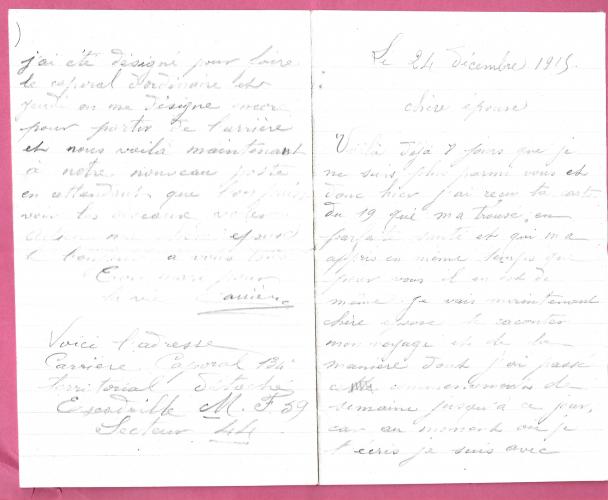 Le 24 décembre 1915
chère epouse
Voilà déjà 7 jours que je
ne suis plus parmi vous et
donc hier j'ai reçu ta carte
du 19 qui m'a trouvé en
parfaite santé et qui m'a
appris en même temps que
pour vous il en est de
même. Je vais maintenant
chère epouse te raconter
mon voyage et de la
manière dont j'ai passé
ce commencement de
semaine jusqu'à ce jour,
car au moment où je
t'écris je suis avec
j'ai été désigné pour faire
le caporal d'ordinaire et
jeudi on me désigne encore
pour partir de l'arrière
et nous voilà maintenant
à notre nouveau poste
en attendant que
à vous tous
Ton pour
la vie Carrière
Voici l'adresse
Carrière Caporal 134e
territorial détaché
Escadrille M. F. 59
Secteur 44